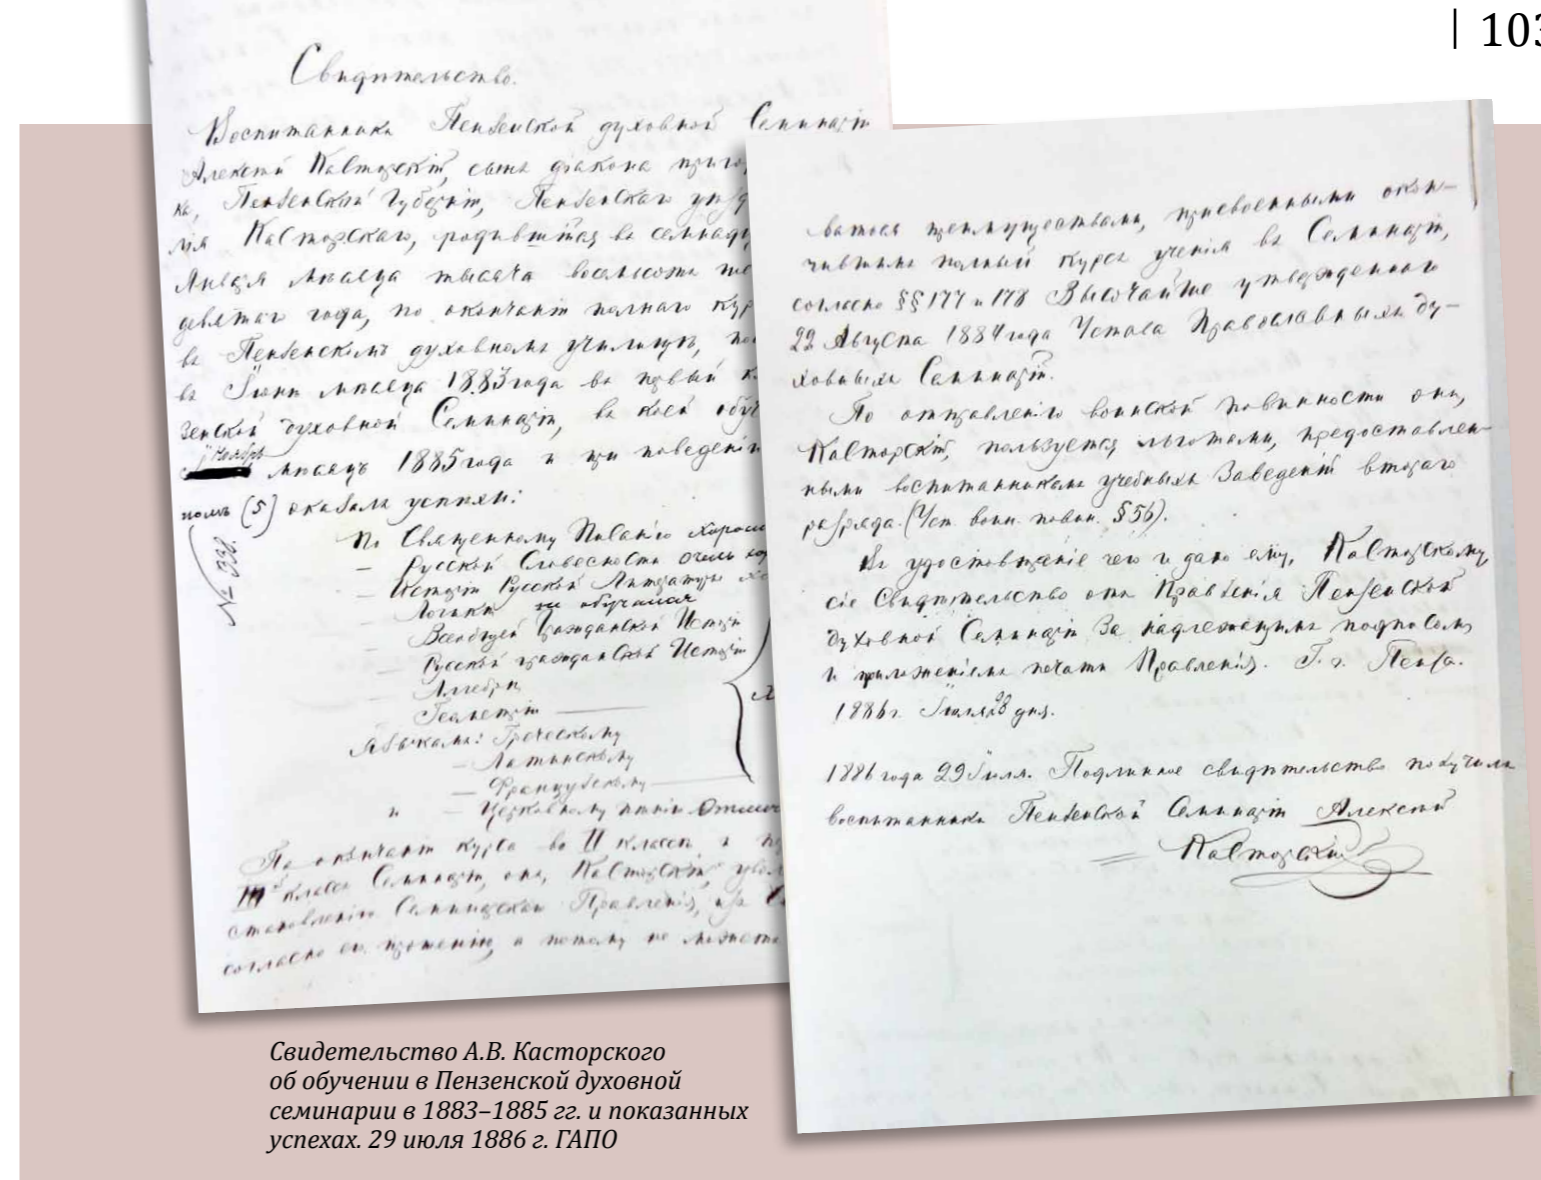 | 103
Свидѣтельство.
Воспитанникъ Пензенской духовной Семинаріи
Алексѣй Касторскій, сынъ діакона приго
ка, Пензенской Губерніи, Пензенскаго уѣзд
лія Касторскаго, родившійся въ семнадц
Января мѣсяца тысяча восемьсотъ ше
девятаго года, по окончаніи полнаго кур
въ Пензенскомъ духовномъ училищѣ, по
въ Іюнѣ мѣсяцѣ 1883 года въ первый к
зенской духовной Семинаріи, въ коей обуч
Ноябрь
мѣсяцъ 1885 года и при поведеніи
номъ (5) оказалъ успѣхи:
№ 338.
По Священному Писанію хорош
— Русской Словесности очень хор
— Исторіи Русской Литературы хо
Логикѣ не обучался
— Всеобщей Гражданской Исторіи
— Русской гражданской Исторіи
— Алгебрѣ
Геометріи —
Языкамъ: Греческому
— Латинскому
— Французскому
и — Церковному пѣнію Отличн
По окончаніи курса во II классѣ, и
III классъ Семинаріи, онъ, Касторскій, увол
становленію Семинарскаго Правленія, изъ С
согласно его прошенію, а потому не можетъ
ваться преимуществами, присвоенными окон-
чившимъ полный курсъ ученія въ Семинаріи,
согласно §§ 177 и 178 Высочайше утвержденнаго
22 Августа 1884 года Устава Православныхъ Ду-
ховныхъ Семинарій.
По отправленію воинской повинности онъ,
Касторскій, пользуется льготами, предоставлен-
ными воспитанникамъ учебныхъ Заведеній втораго
разряда. (Уст. воин. повин. § 56).
Въ удостовѣреніе чего и дано ему, Касторскому,
сіе Свидѣтельство отъ Правленія Пензенской
духовной Семинаріи за надлежащимъ подписомъ
и приложеніемъ печати Правленія. Г. Пенза.
1886 г. Іюля 28 дня.
1886 года 29 Іюля. Подлинное свидѣтельство получилъ
воспитанникъ Пензенской Семинаріи Алексѣй
Касторскій
Свидетельство А.В. Касторского
об обучении в Пензенской духовной
семинарии в 1883–1885 гг. и показанных
успехах. 29 июля 1886 г. ГАПО